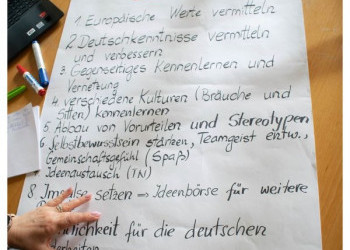 1. Europäische Werte vermitteln
2. Deutschkenntnisse vermitteln
und verbessern
3. Gegenseitiges Kennenlernen und
Vernetzung
4. verschiedene Kulturen (Bräuche und
Sitten) kennenlernen
5. Abbau von Vorurteilen und Stereotypen
6. Selbstbewusstsein stärken, Teamgeist entw.,
Gemeinschaftsgefühl (Spaß)
Ideenaustausch (TN)
8. Impulse setzen ⇒ Ideenbörse für weitere
für die deutschen